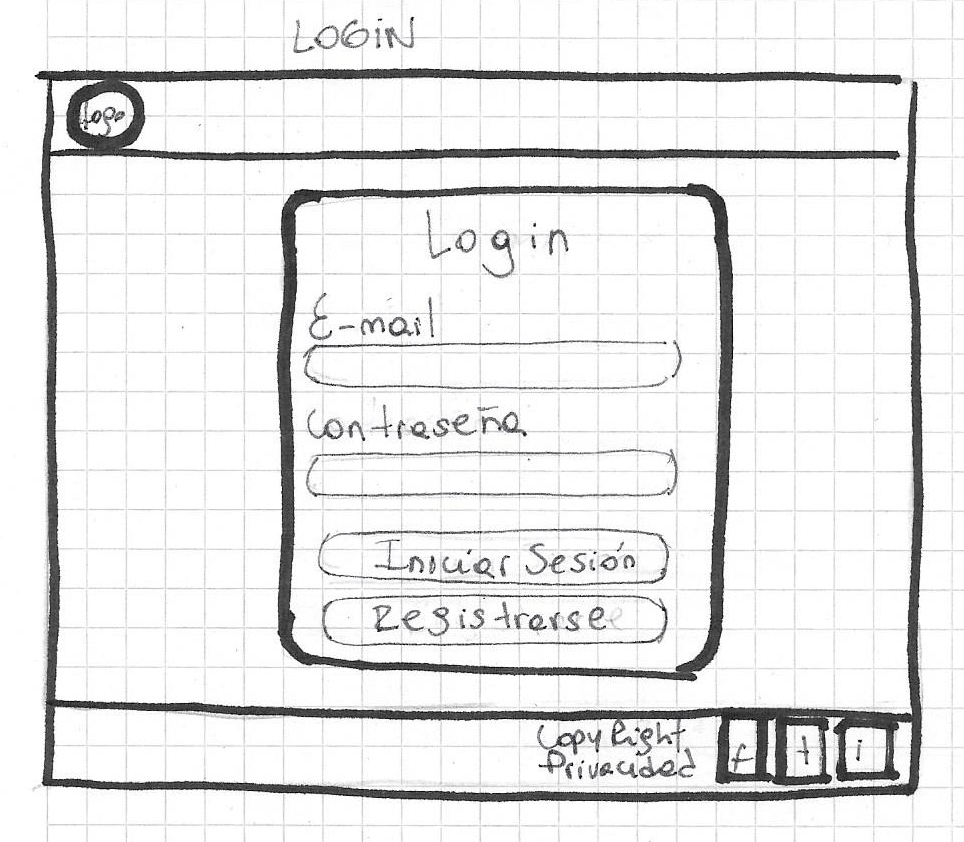 LOGiN
Logo
Login
E-mail
Contraseña
Iniciar Sesión
Registrarse
CopyRight
Privacidad
f t i